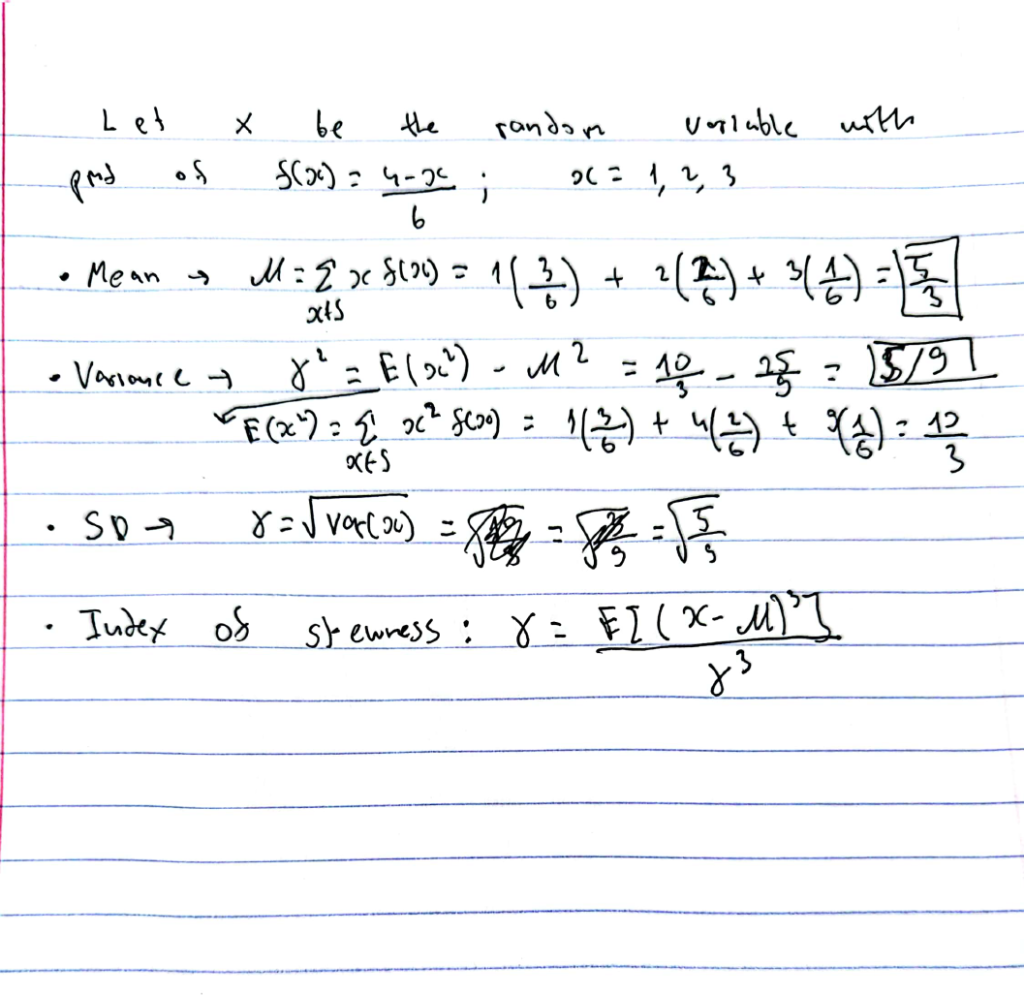 Let x be the random variable with
pmf of f(x) = (4-x)/6 ; x = 1, 2, 3
• Mean → M = Σ_{x∈S} x f(x) = 1(3/6) + 2(2/6) + 3(1/6) = 5/3
• Variance → γ² = E(x²) - M² = 10/3 - 25/9 = 5/9
E(x²) = Σ_{x∈S} x² f(x) = 1(3/6) + 4(2/6) + 9(1/6) = 10/3
• SD → γ = √var(x) = = = √(5/9)
• Index of skewness : γ = E[(x-M)³]/γ³